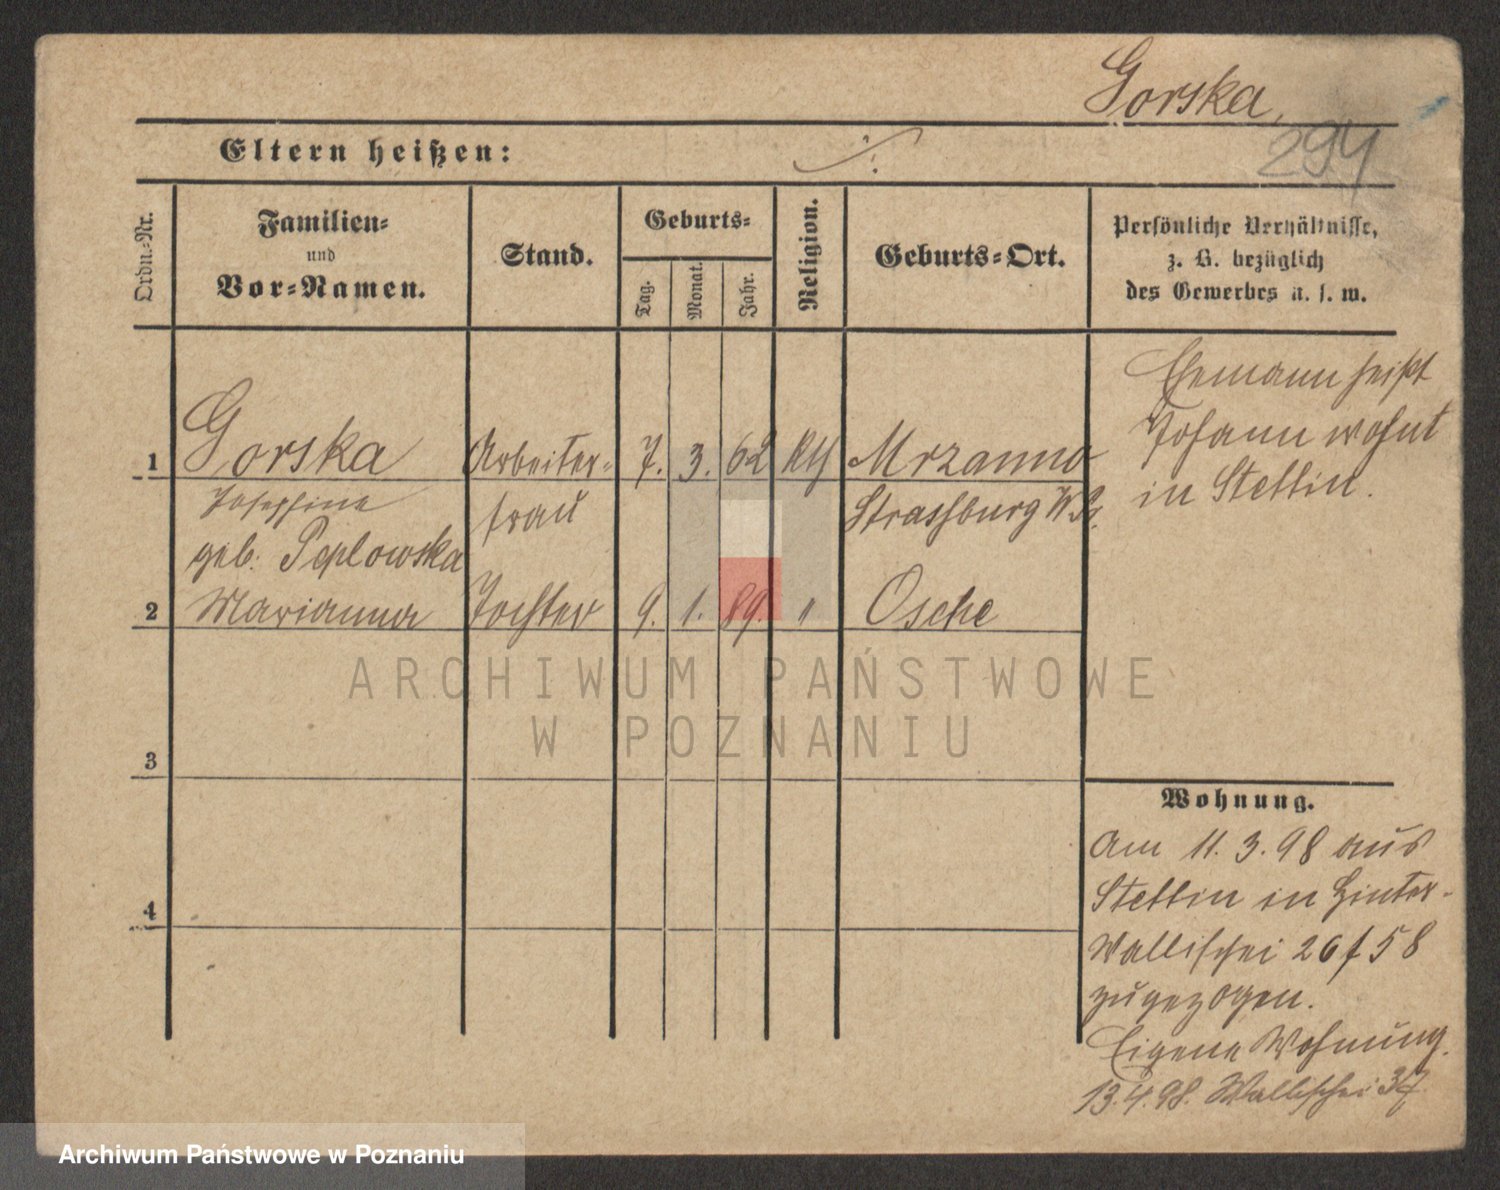 Gorska
294
Eltern heißen: ./.
Ordn.-Nr.
Familien-
und
Vor-Namen.
Stand.
Geburts-
Tag.
Monat.
Jahr.
Religion.
Geburts-Ort.
Persönliche Verhältnisse,
z. B. bezüglich
des Gewerbes u. s. w.
1 Gorska Arbeiter- 7. 3. 62 kth Mrzanno
Josephine frau Strassburg W.Pr.
geb. Peplowska
2 Marianna Tochter 9. 1. 89. " Osche
3
4
Ehemann heißt
Johann wohnt
in Stettin.
Wohnung.
Am 11. 3. 98 aus
Stettin in Hinter-
Wallischei 26 f 58
zugezogen.
Eigene Wohnung.
13.4.98. Wallischei 37
ARCHIWUM PAŃSTWOWE
W POZNANIU
Archiwum Państwowe w Poznaniu